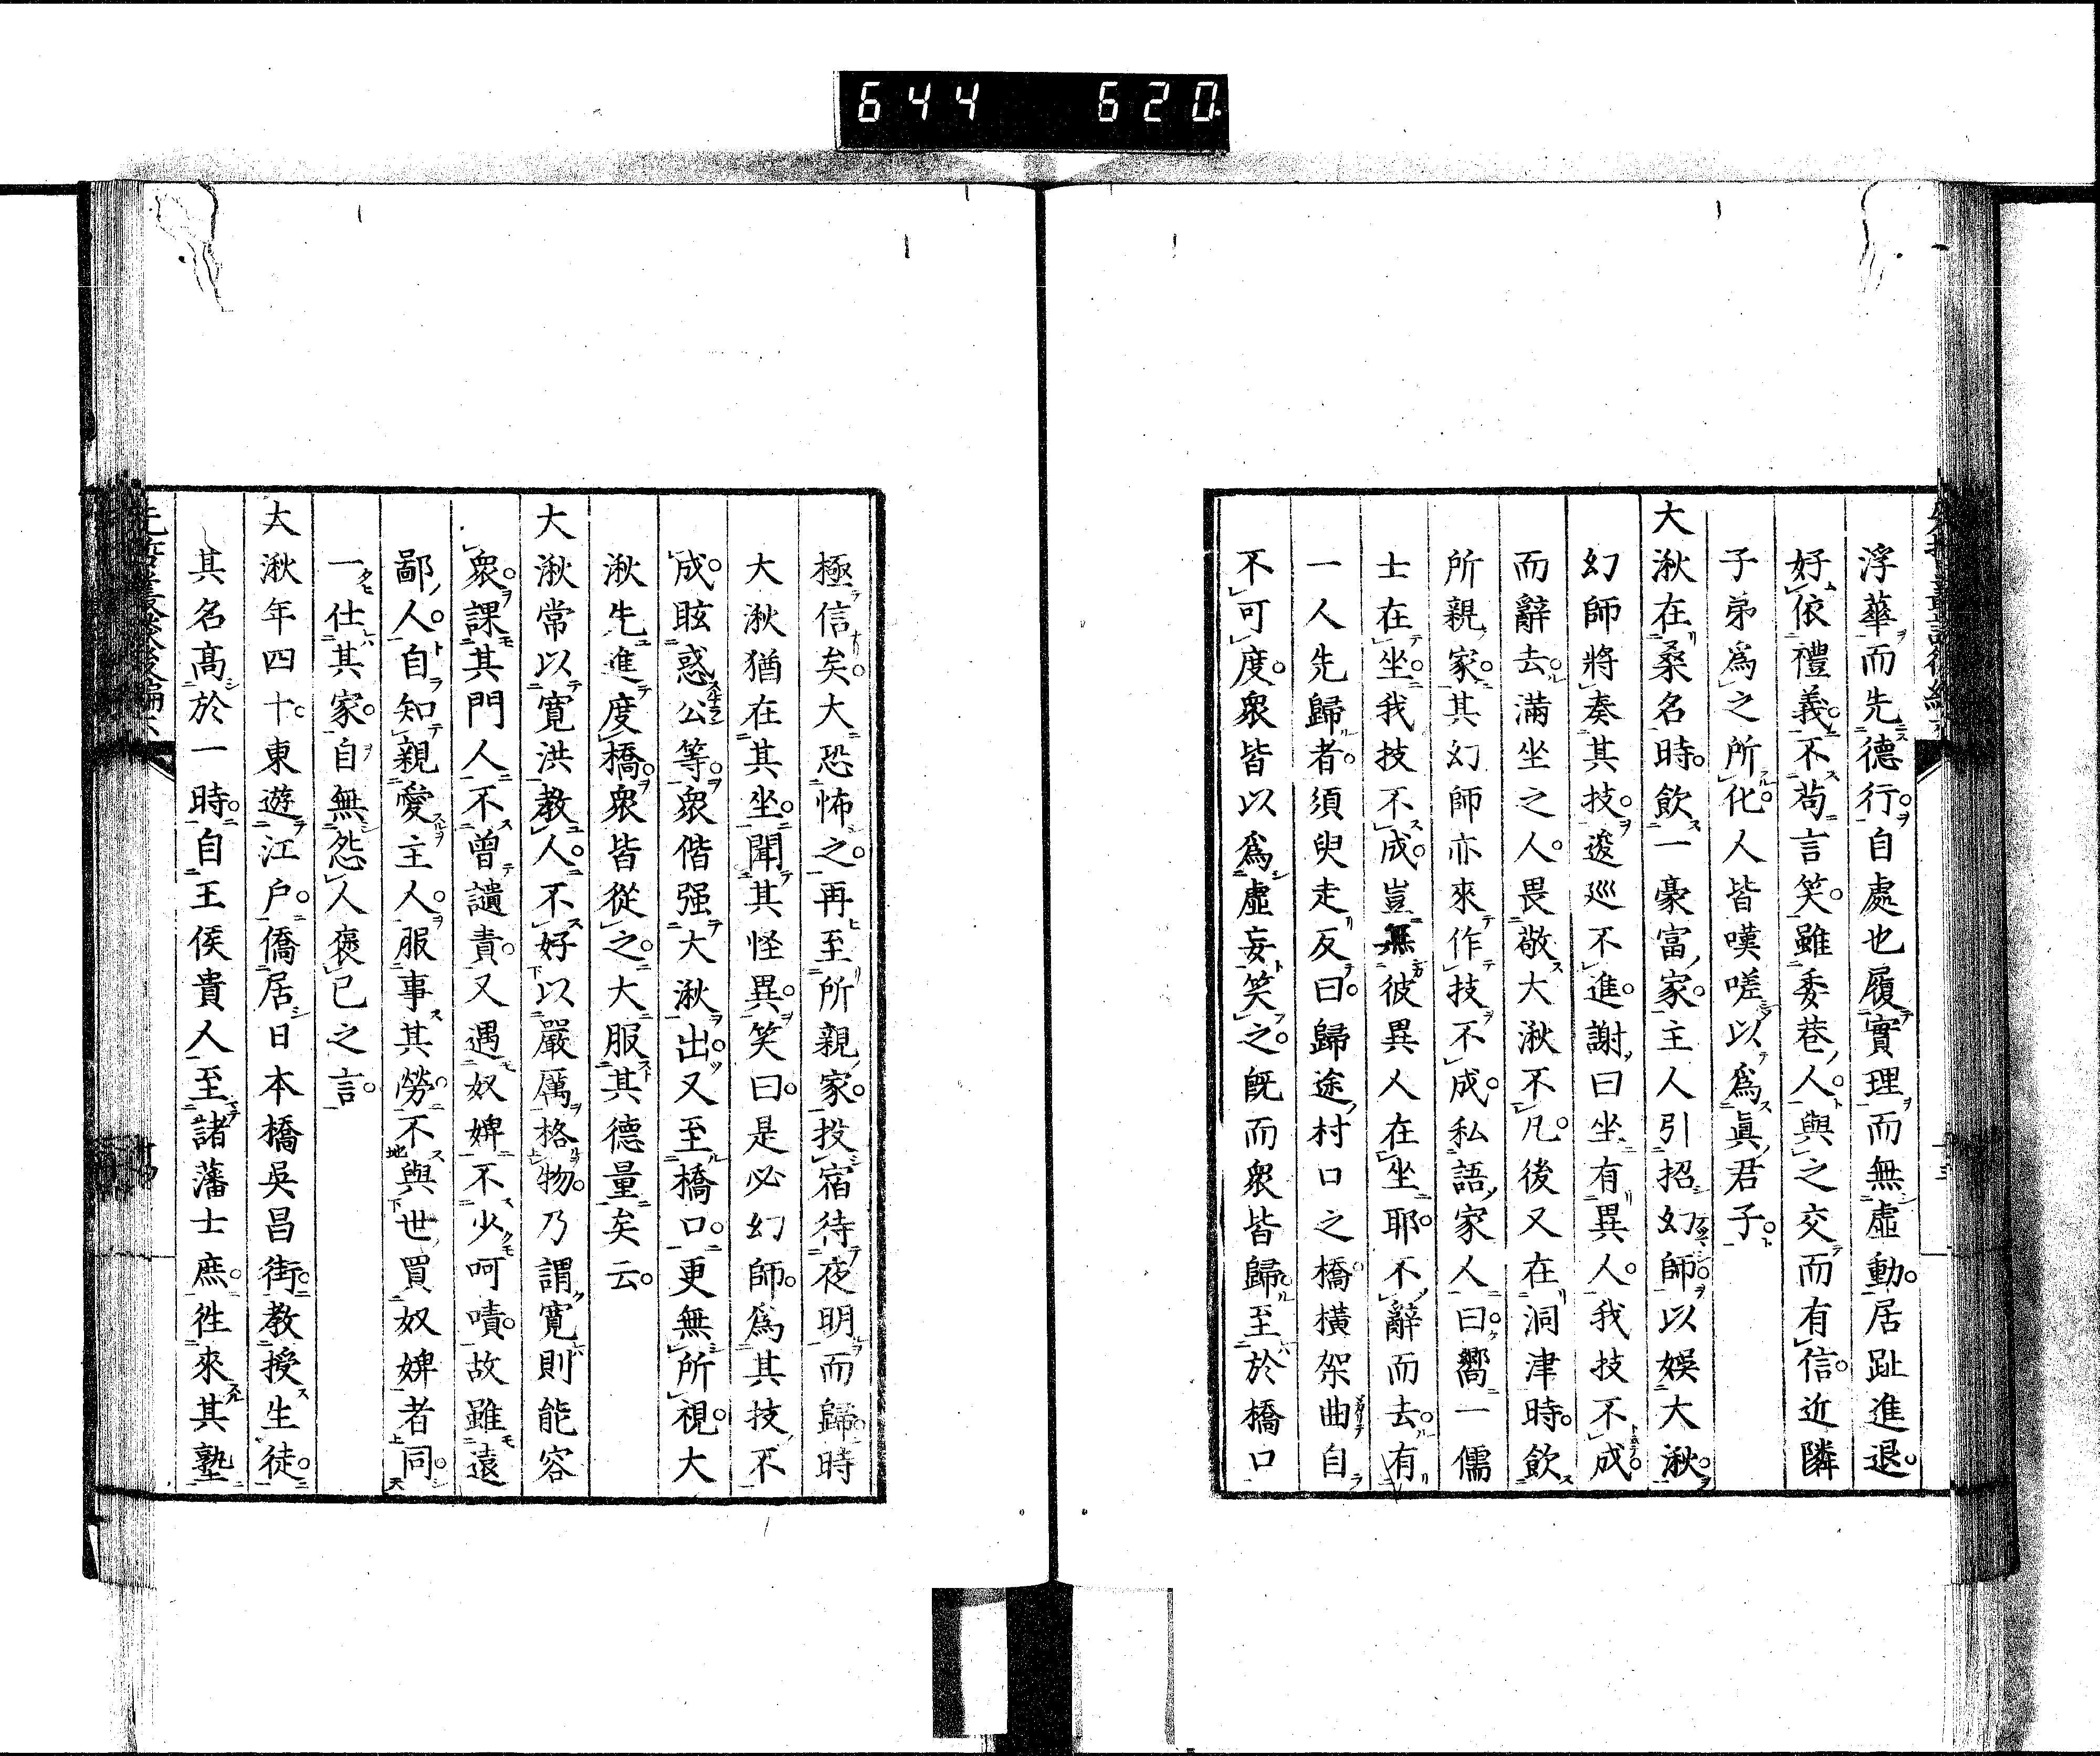 644 620
浮華而先德行。自處也履實理而無虛動。居趾進退。
好依禮義。不苟言笑。雖委巷人。與之交而有信。近隣
子弟爲之所化。人皆嘆嗟以爲眞君子。
大湫在桑名時。飲一豪富家。主人引招幻師。以娛大湫。
幻師將奏其技。逡巡不進。謝曰坐有異人。我技不成。
而辭去。滿坐之人。畏敬大湫不凡。後又在洞津時。飲
所親家。其幻師亦來作技不成。私語家人曰。嚮一儒
士在坐。我技不成。豈無彼異人在坐耶。不辭而去。有
一人先歸者。須臾走反曰。歸途村口之橋。橫架曲自
不可度。衆皆以爲虛妄笑之。旣而衆皆歸。至於橋口
極信矣。大恐怖之。再至所親家。投宿待夜明而歸。時
大湫猶在其坐。聞其怪異。笑曰。是必幻師。爲其技不
成。眩惑公等。衆偕强大湫出。又至橋口。更無所視。大
湫先進度橋。衆皆從之。大服其德量矣云。
大湫常以寬洪教人。不好以嚴厲格物。乃謂寬則能容
衆。課其門人。不曾譴責。又遇奴婢。不少呵嘖。故雖遠
鄙人。自知親愛主人。服事其勞。不與世買奴婢者同。
一仕其家。自無怨人褒己之言。
大湫年四十。東遊江戸。僑居日本橋吳昌街。教授生徒。
其名高於一時。自王侯貴人。至諸藩士庶。徃來其塾